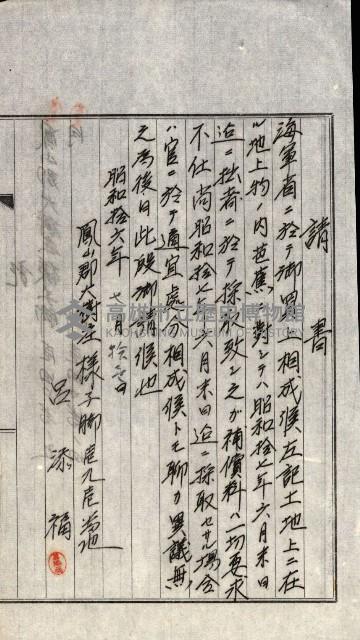 請書
海軍省ニ於テ御買上相成候左記土地上ニ在
ル地上物ノ内芭蕉ニ對シテハ昭和拾七年六月末日
迄ニ拙者ニ於テ採取致シ之ガ補償料ハ一切要求
不仕尚昭和拾七年六月末日迄ニ採取セサル場合
ハ官ニ於テ適宜處分相成候トモ聊カ異議無
之為後日此段御請候也
昭和拾六年七月拾 日
鳳山郡大社庄楼子脚 番地
呂添福
高雄市立歷史博物館